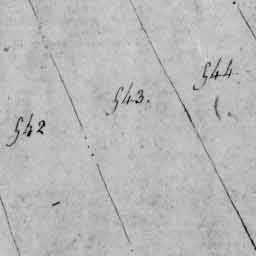 542
543.
544